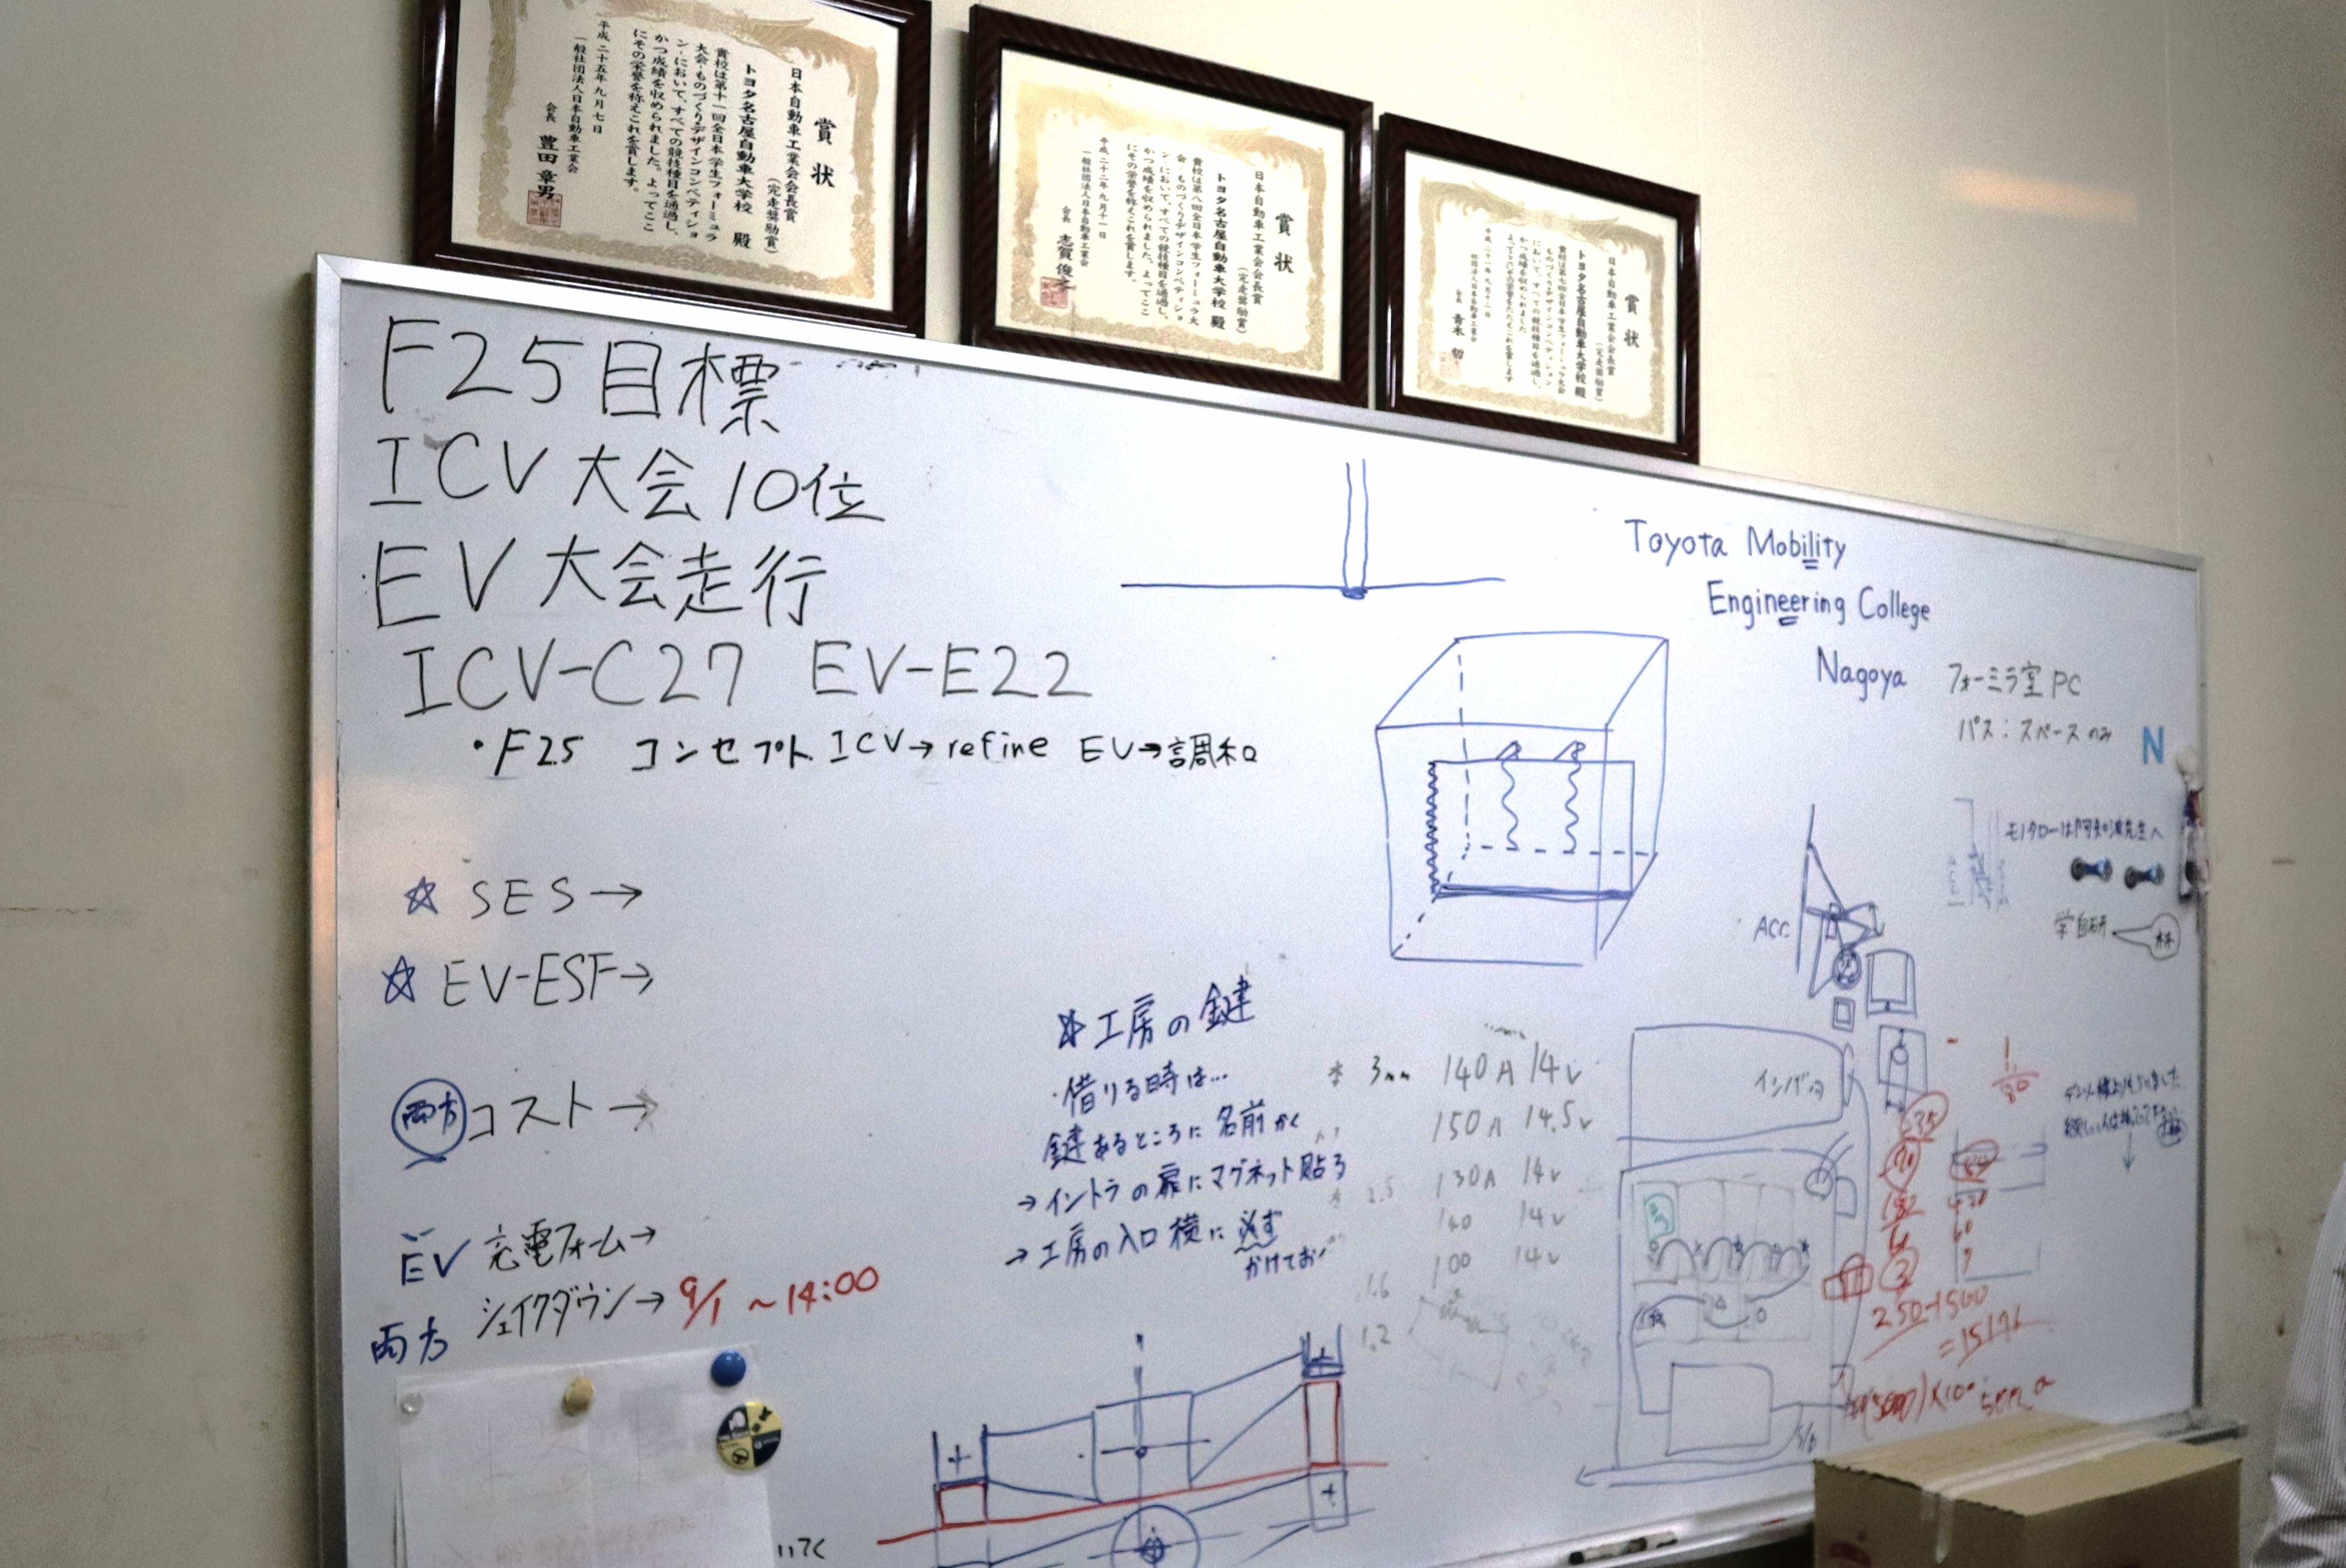 賞状
日本自動車工業会会長賞
(完走奨励賞)
トヨタ名古屋自動車大学校 殿
貴校は第十一回全日本学生フォーミュラ
大会-ものづくりデザインコンペティショ
ン-において、すべての競技種目を通過し、
かつ成績を収められました。よってここ
にその栄誉を称えこれを賞します。
平成二十五年九月七日
一般社団法人日本自動車工業会
会長 豊田章男
賞状
日本自動車工業会会長賞
(完走奨励賞)
トヨタ名古屋自動車大学校 殿
貴校は第八回全日本学生フォーミュラ大
会-ものづくりデザインコンペティショ
ン-において、すべての競技種目を通過し、
かつ成績を収められました。よってここ
にその栄誉を称えこれを賞します。
平成二十二年九月十一日
一般社団法人日本自動車工業会
会長 志賀俊之
賞状
日本自動車工業会会長賞
(完走奨励賞)
トヨタ名古屋自動車大学校 殿
貴校は第七回全日本学生フォーミュラ大会
会長 青木哲
F25目標
ICV大会10位
EV大会走行
ICV-C27 EV-E22
・F25 コンセプト ICV→refine EV→調和
☆ SES→
☆ EV-ESF→
両方 コスト→
EV 充電フォーム→
両方 シェイクダウン→ 9/1 ~14:00
☆工房の鍵
・借りる時は...
鍵あるところに名前かく
→イントラの扉にマグネット貼る
→工房の入口横に必ず
かけておく
Toyota Mobility
Engineering College
Nagoya
フォーミラ室PC
パス:スペースのみ
N
モノタローは阿知波先生へ
学自研
林
ACC
インバータ
* 3mm 140A 14v
150A 14.5v
* 2.5 130A 14v
140 14v
100 14v
1.6
1.2
1/80
35
250+1500
いてく